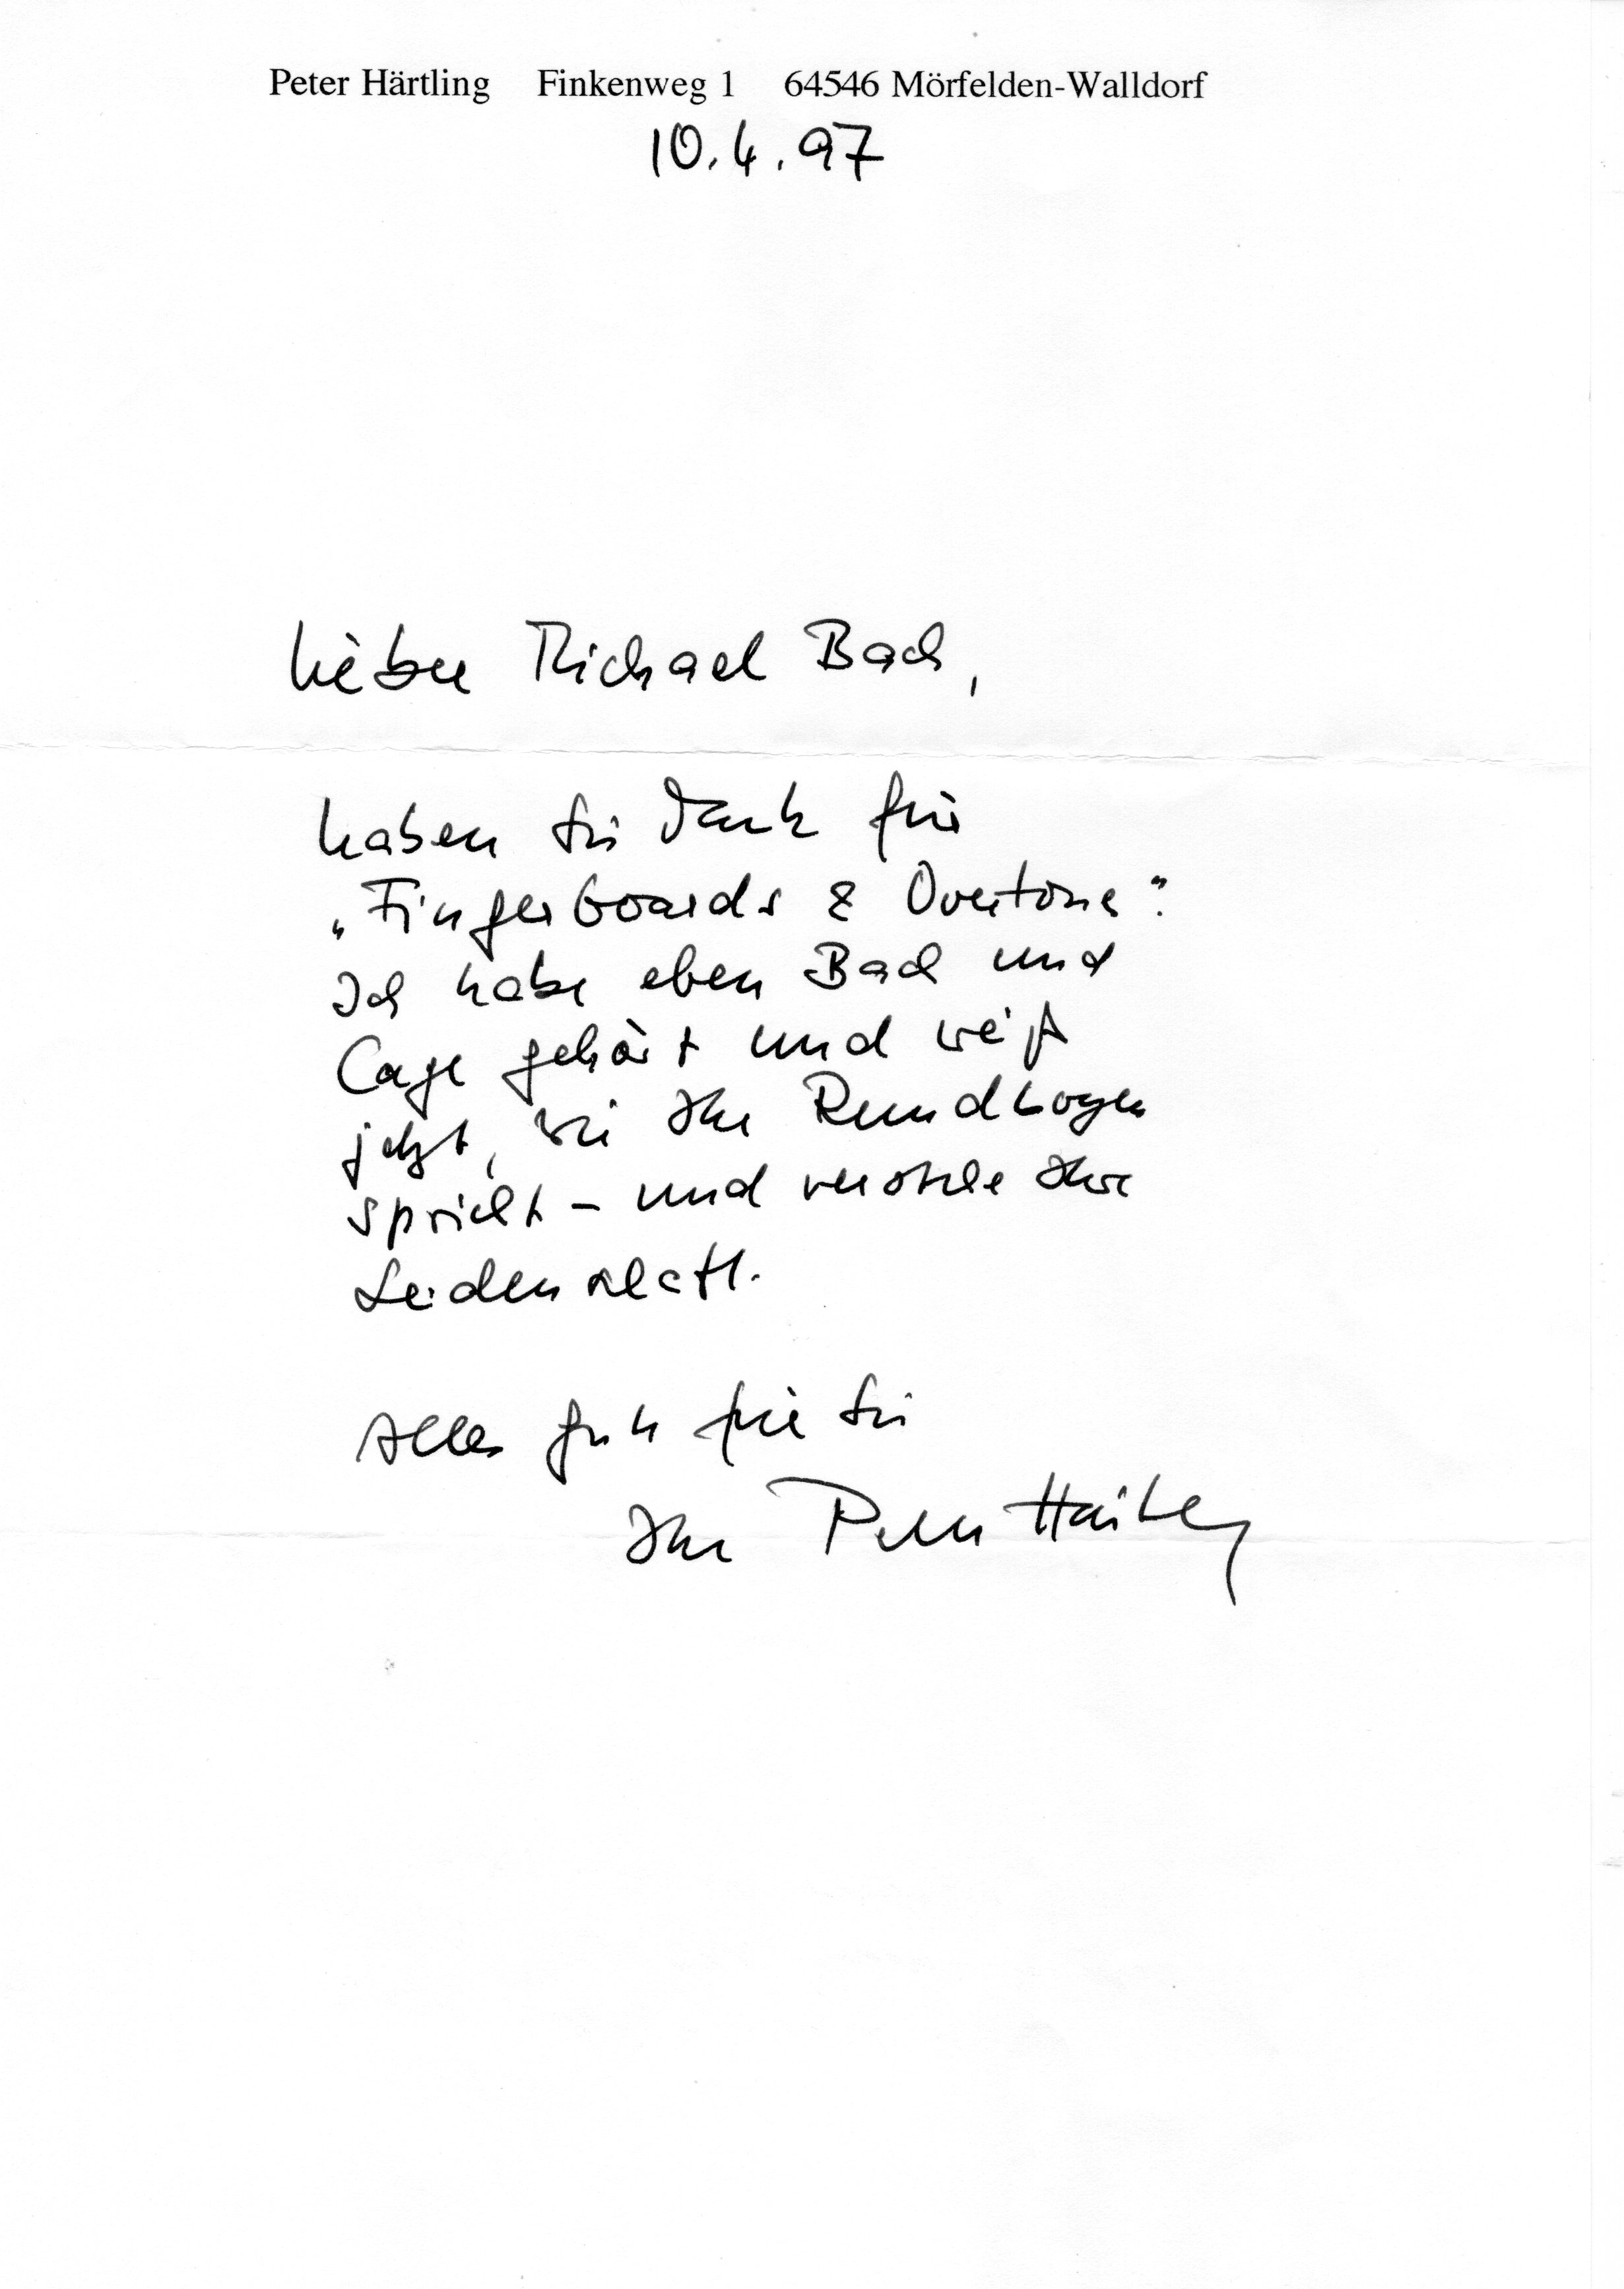 Peter Härtling Finkenweg 1 64546 Mörfelden-Walldorf
10.4.97
Lieber Michael Bach,
haben Sie Dank für
„Fingerboards & Overtones".
Ich habe eben Bach und
Cage gehört und weiß
jetzt, wie Ihr Rundbogen
spricht – und verstehe Ihre
Leidenschaft.
Alles Gute für Sie
Ihr Peter Härtling